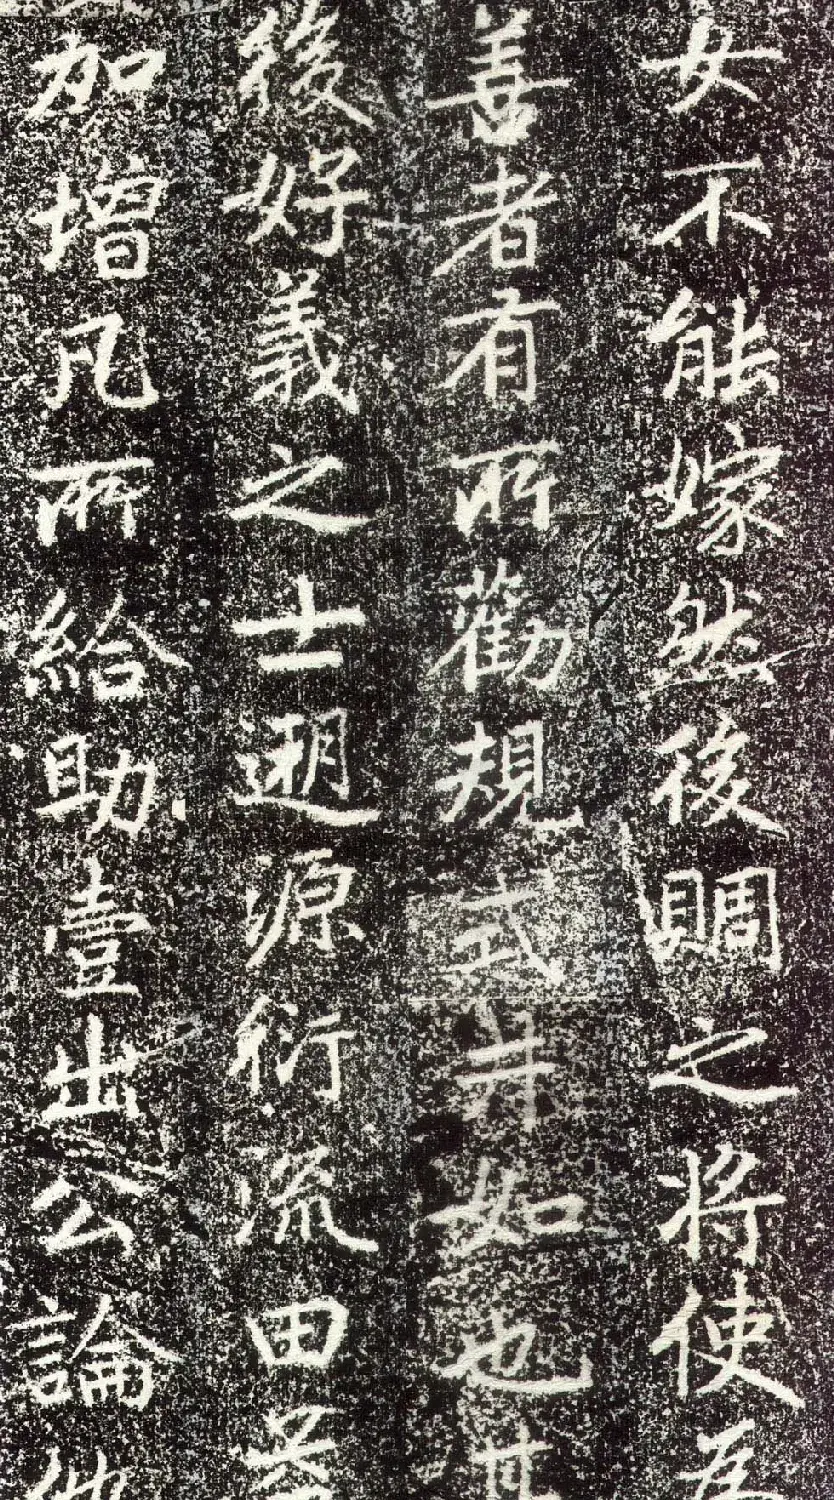 女不能嫁然後賙之將使為
善者有所勸規式井如也其
後好義之士遡源衍流田益
加增凡所給助壹出公論他